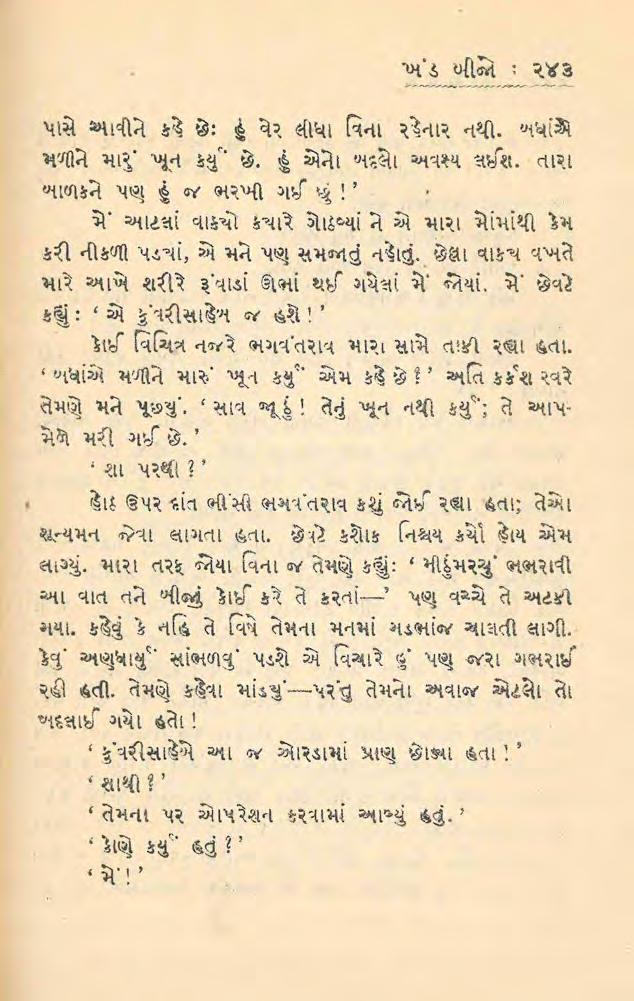 ખંડ બીજો : ૨૪૩
પાસે આવીને કહે છેઃ હું વેર લીધા વિના રહેનાર નથી. બધાંએ
મળીને મારું ખૂન કર્યું છે. હું એનો બદલો અવશ્ય લઈશ. તારા
બાળકને પણ હું જ ભરખી ગઈ છું !’
મેં આટલાં વાક્યો ક્યારે ગોઠવ્યાં ને એ મારા મોંમાંથી કેમ
કરી નીકળી પડ્યાં, એ મને પણ સમજાતું નહોતું. છેલ્લા વાક્ય વખતે
મારે આખે શરીરે રૂંવાડાં ઊભાં થઈ ગયેલાં મેં જોયાં. મેં છેવટે
કહ્યું : ‘ એ કુંવરીસાહેબ જ હશે ! ’
કોઈ વિચિત્ર નજરે ભગવંતરાવ મારા સામે તાકી રહ્યા હતા.
‘ બધાંએ મળીને મારું ખૂન કર્યું એમ કહે છે ? ’ અતિ કર્કશ સ્વરે
તેમણે મને પૂછ્યું. ‘ સાવ જૂઠું ! તેનું ખૂન નથી કર્યું; તે આપ-
મેળે મરી ગઈ છે. ’
‘ શા પરથી ? ’
હોઠ ઉપર દાંત ભીંસી ભગવંતરાવ કશું જોઈ રહ્યા હતા; તેઓ
શૂન્યમન જેવા લાગતા હતા. છેવટે કશોક નિશ્ચય કર્યો હોય એમ
લાગ્યું. મારા તરફ જોયા વિના જ તેમણે કહ્યુંઃ ‘ મીઠુંમરચું ભભરાવી
આ વાત તને બીજું કોઈ કરે તે કરતાં—’ પણ વચ્ચે તે અટકી
ગયા. કહેવું કે નહિ તે વિષે તેમના મનમાં ગડભાંજ ચાલતી લાગી.
કેવું અણધાર્યું સાંભળવું પડશે એ વિચારે હું પણ જરા ગભરાઈ
રહી હતી. તેમણે કહેવા માંડ્યું—પરંતુ તેમનો અવાજ એટલો તો
બદલાઈ ગયો હતો !
‘ કુંવરીસાહેબે આ જ ઓરડામાં પ્રાણ છોડ્યા હતા ! ’
‘ શાથી ? ’
‘ તેમના પર ઓપરેશન કરવામાં આવ્યું હતું. ’
‘ કોણે કર્યું હતું ? ’
‘ મેં ! ’